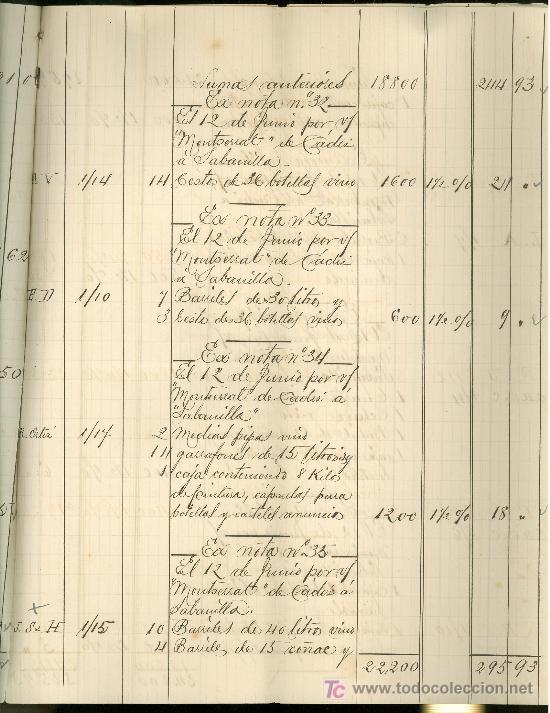 Sumas anteriores 18800 244 93
Ex nota nº 32
El 12 de Junio por v/
"Montserrat" de Cádiz
á Sabanilla.
V 1/14 14 Cestos de 36 botellas vino 1600 1½ % 24 "
Ex nota Nº 33
El 12 de Junio por v/
"Montserrat" de Cádiz
á Sabanilla.
1/10 7 Barriles de 30 litros y
3 Cestos de 36 botellas vino 600 1½ % 9 "
Ex nota nº 34
El 12 de Junio por v/
"Montserrat" de Cádiz á
"Sabanilla"
1/17 2 Medias pipas vino
14 garrafones de 15 litros y
1 caja conteniendo 8 Kilo
de pintura, cápsulas para
botellas y carteles anuncios 1200 1½ % 18 "
Ex nota Nº 35
El 12 de Junio por v/
"Montserrat" de Cádiz á
Sabanilla.
1/15 10 Barriles de 40 litros vino
4 Barriles de 15 conac y
22,200 295 93
TC www.todocoleccion.net